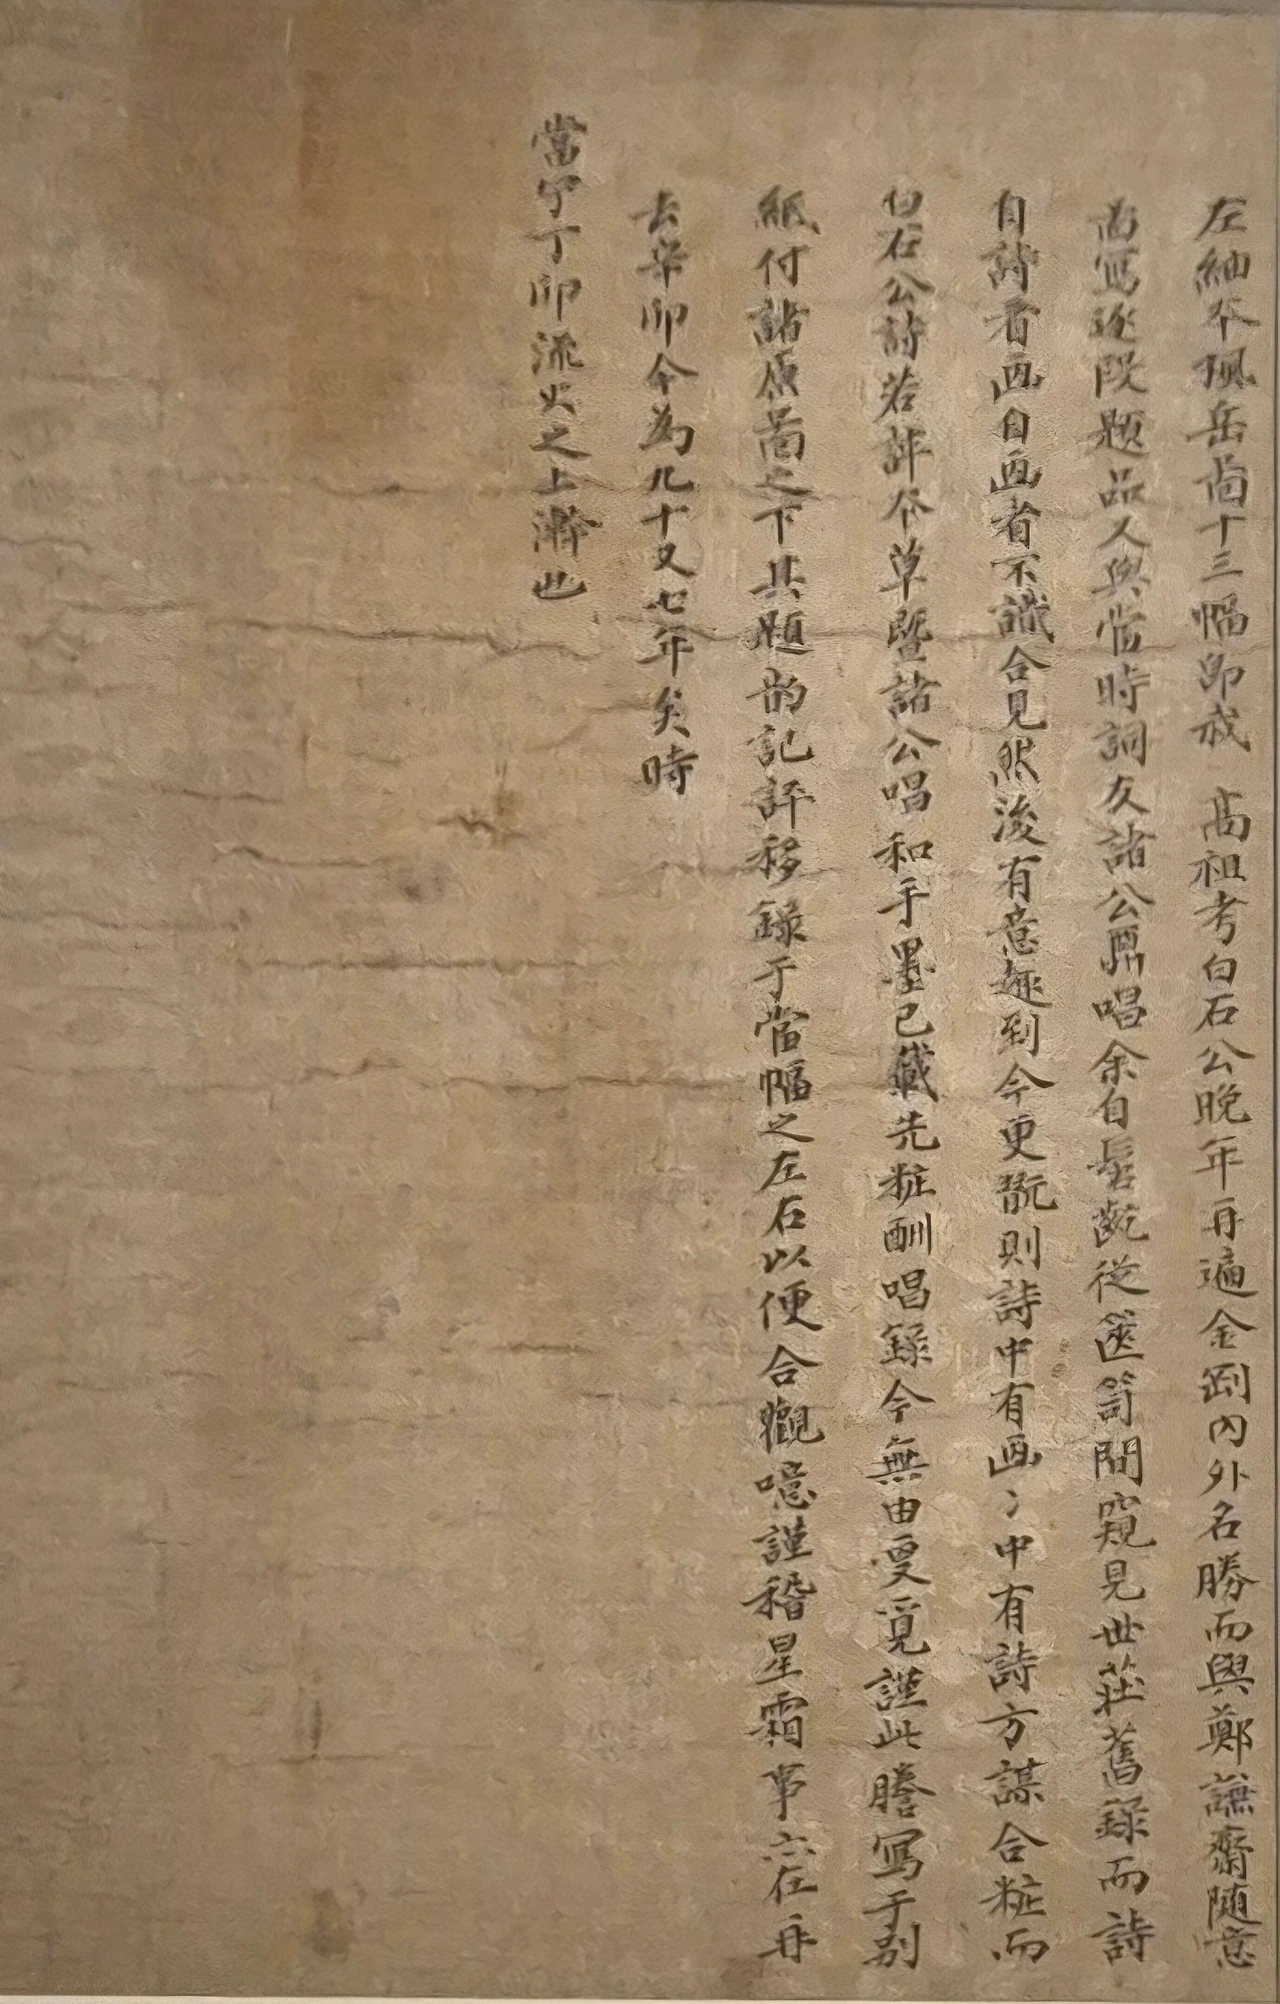 左紬本楓岳啚十三幅卽我 高祖考白石公晚年再遍金剛內外名勝而與鄭謙齋随意
而寫逐段題品人與當時詞友諸公賡唱余自髫齔從篋笥間窺見世莊舊錄而詩
自詩者画自画者不識合見然後有意趣到今更翫則詩中有画〻中有詩方謀合粧而
白石公詩若評本草曁諸公唱和手墨已藏先粧酬唱錄今無由更覓謹此謄寫于別
紙付諸原啚之下其題韵記評移錄于當幅之左右以便合觀噫謹稽星霜事在再
去辛卯今為九十又七年矣時
當宁丁卯流火之上澣也